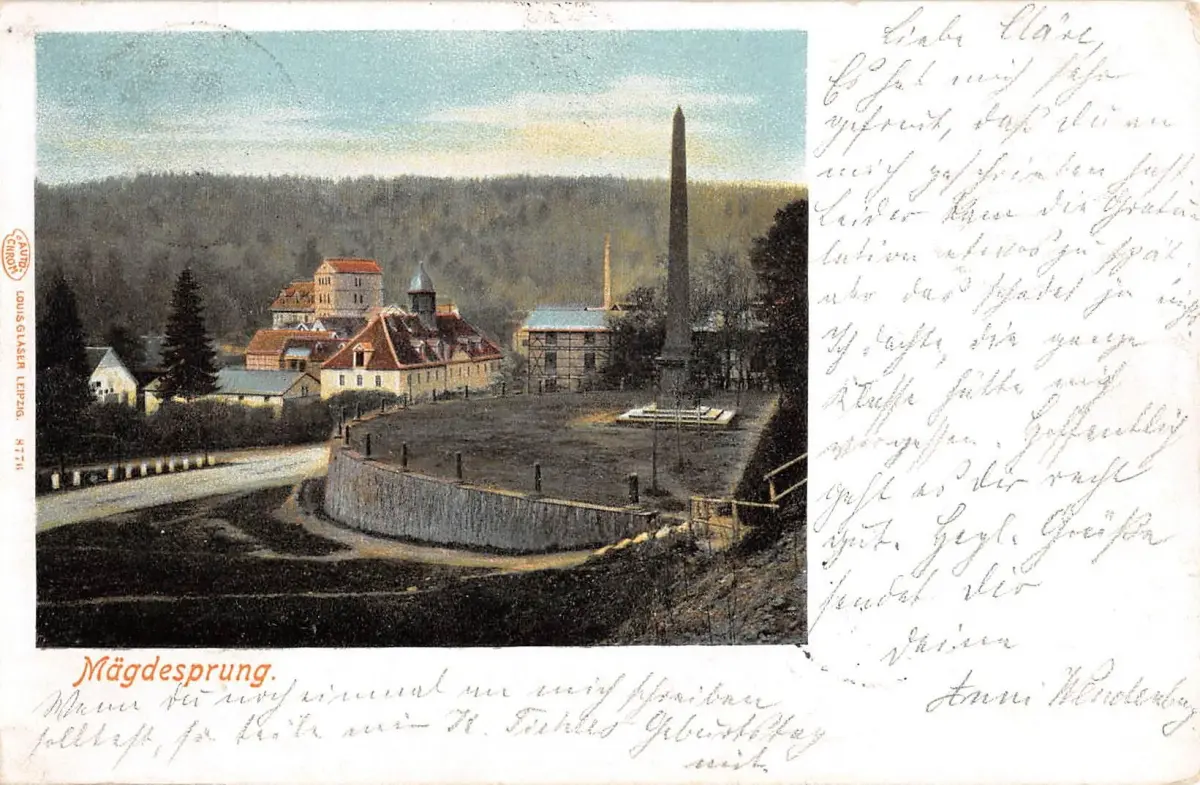 AUTO-CHROM
LOUIS GLASER LEIPZIG. 8773
Mägdesprung.
Liebe Kläre,
Es hat mich sehr
gefreut, daß Du an
mich geschrieben hast
Leider kam die Gratu
lation etwas zu spät,
aber das schadet ja nichts.
Ich dachte, die ganze
Klasse hätte mich
vergessen. Hoffentlich
geht es dir recht
gut. Herzl. Grüße
sendet Dir
Deine
Anni
Wenn Du noch einmal an mich schreiben
solltest, so teile mir K. Geburtstag
mit.